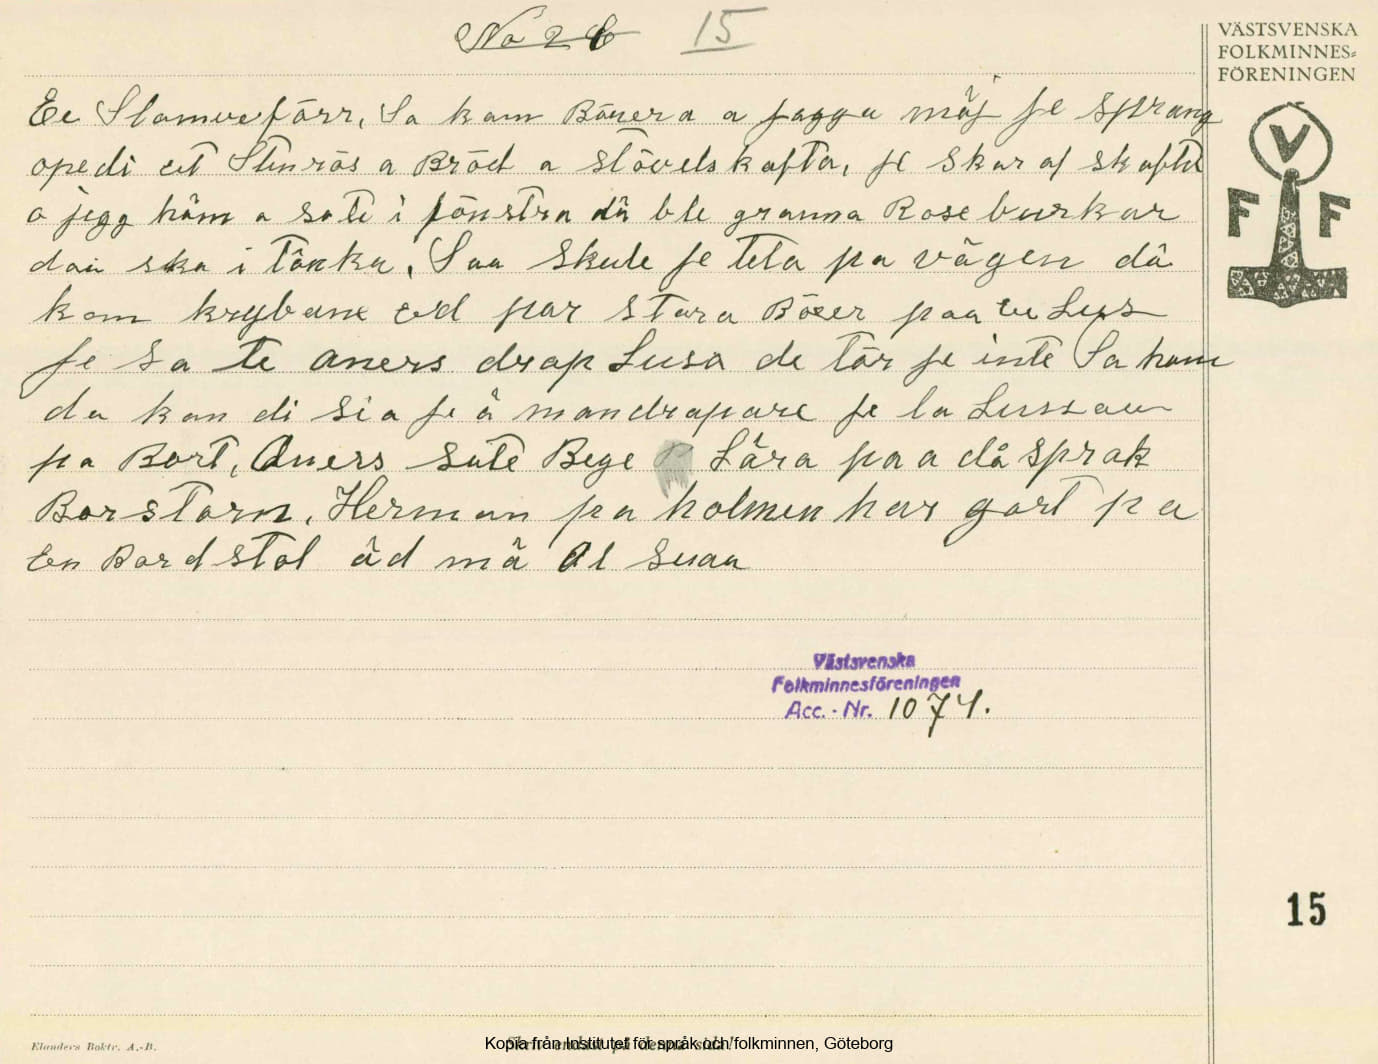 No 2 C 15
VÄSTSVENSKA
FOLKMINNES-
FÖRENINGEN
V
F F
Ee Slamvefärr, Sa kam Bönera a jagga mäj je sprang
opedi et Stenrös a Bröt a stövelskafta, je skar af skafta
a jegg häm a sate i fönstra då ble granna Roseburkar
dai ska i tänka, Saa skule je leta pa vägen då
kam krybane ed par stora Böser paa ve Lus
je sa te aners drap Lusa de tör je inte Sa ham
da kan di sia je ä mandrapare je la Lussau
pa Bort, Aners sate Bege Låra pa a då sprak
Borstarn, Herman pa holmen har gort pa
en Bordstol åd mä al suaa
Västsvenska
Folkminnesföreningen
Acc. - Nr. 1074.
15
Elanders Boktr. A.-B.
Kopia från Institutet för språk och folkminnen, Göteborg